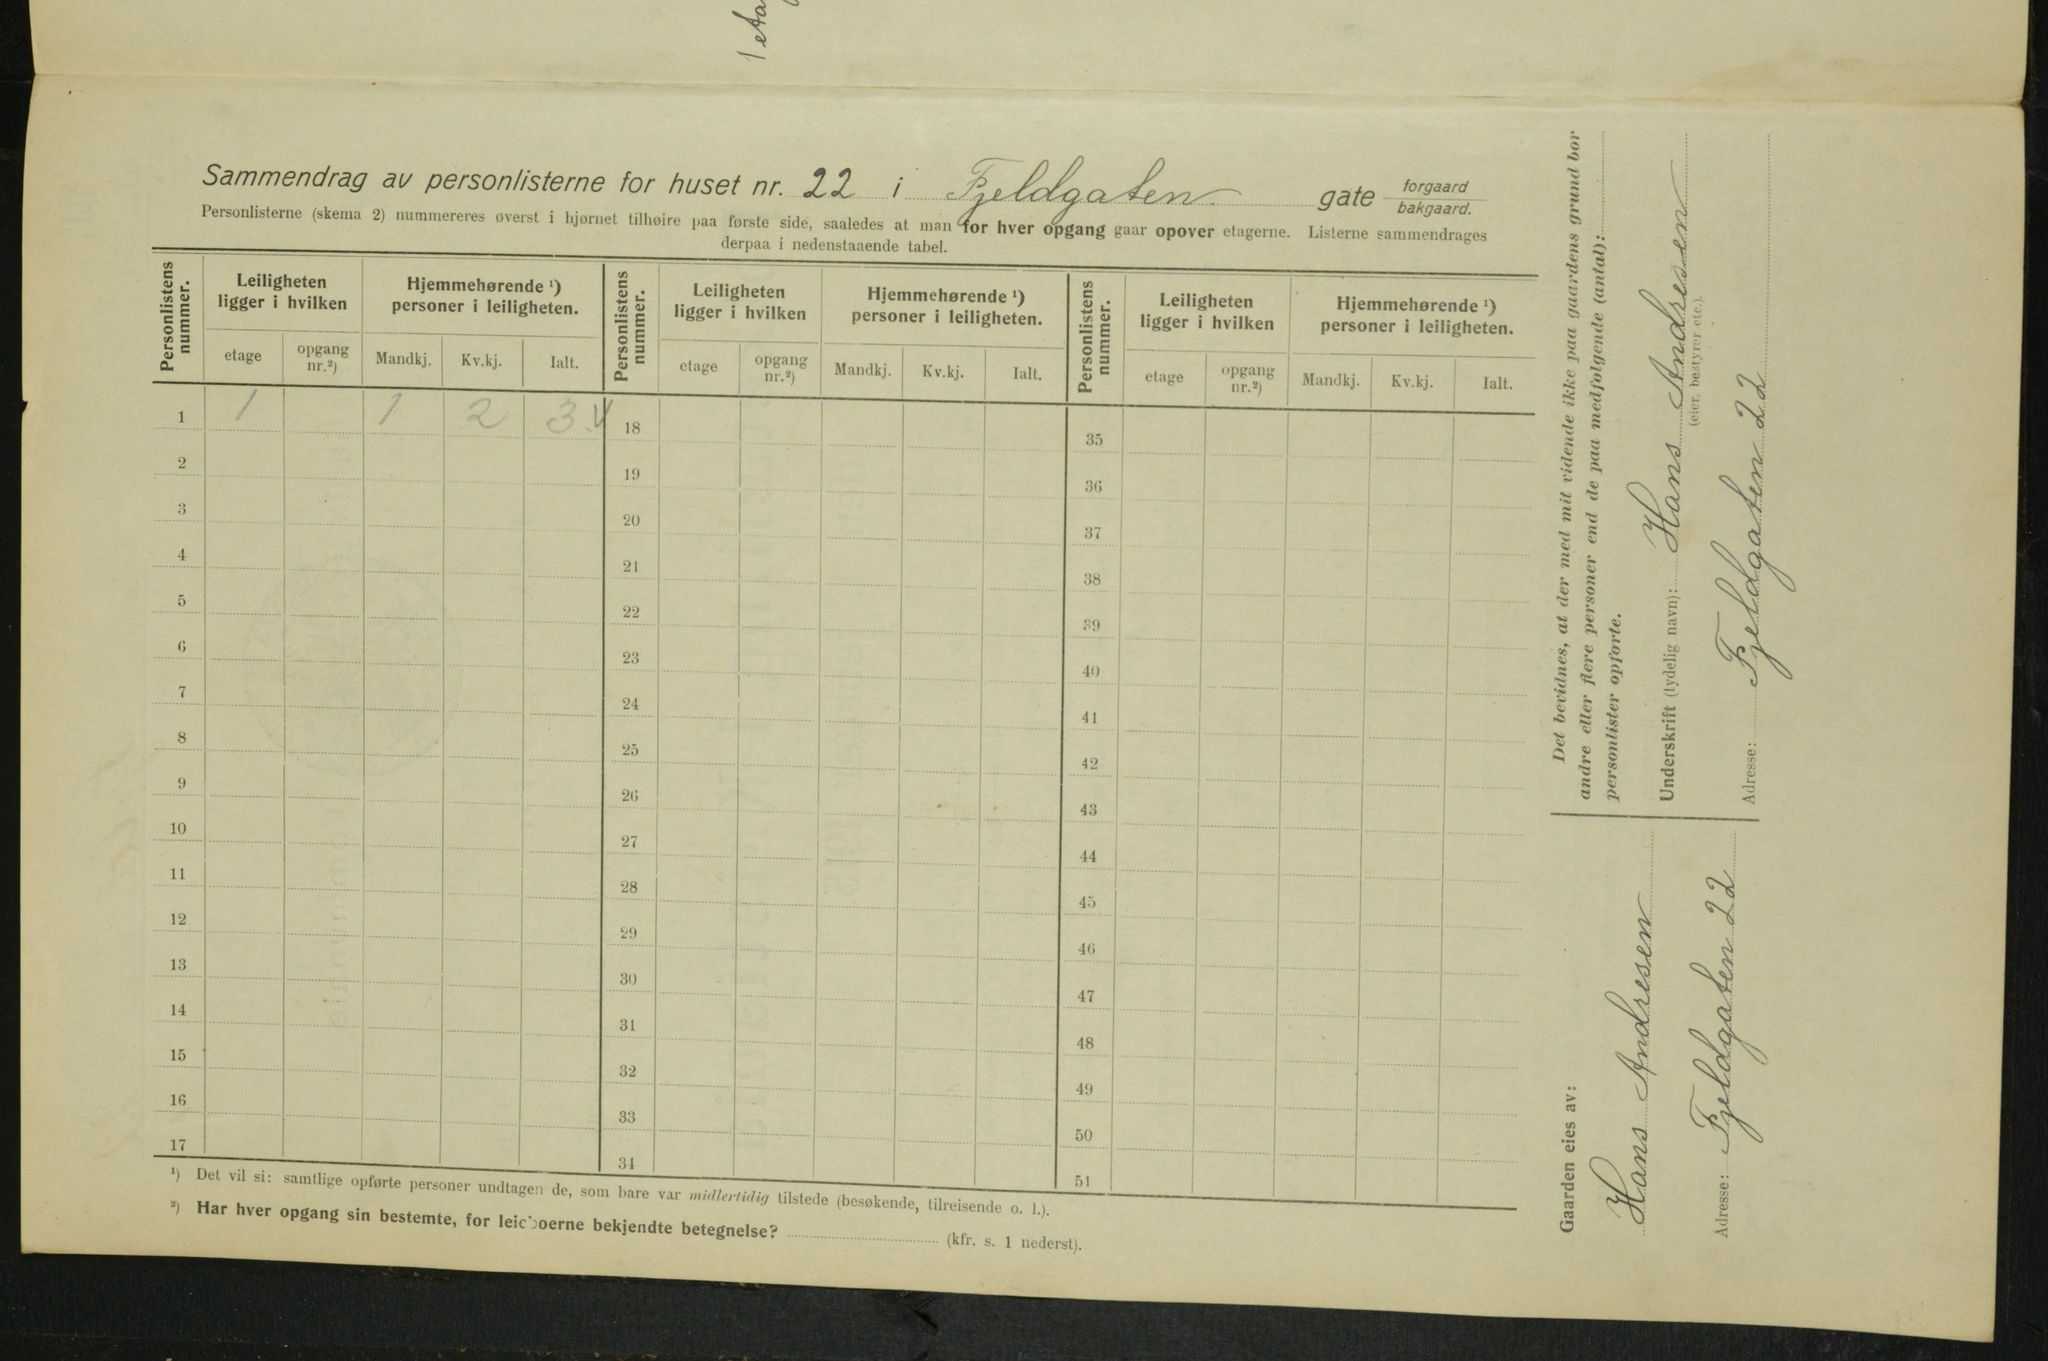 1 eta
Sammendrag av personlisterne for huset nr. 22 i Fjeldgaten gate forgaard bakgaard.
Personlisterne (skema 2) nummereres øverst i hjørnet tilhøire paa første side, saaledes at man for hver opgang gaar opover etagerne. Listerne sammendrages
derpaa i nedenstaaende tabel.
Personlistens nummer. Leiligheten ligger i hvilken Hjemmehørende ¹) personer i leiligheten. Personlistens nummer. Leiligheten ligger i hvilken Hjemmehørende ¹) personer i leiligheten. Personlistens nummer. Leiligheten ligger i hvilken Hjemmehørende ¹) personer i leiligheten.
etage opgang nr.²) Mandkj. Kv.kj. Ialt. etage opgang nr.²) Mandkj. Kv.kj. Ialt. etage opgang nr.²) Mandkj. Kv.kj. Ialt.
1 1 1 2 3 18 35
2 19 36
3 20 37
4 21 38
5 22 39
6 23 40
7 24 41
8 25 42
9 26 43
10 27 44
11 28 45
12 29 46
13 30 47
14 31 48
15 32 49
16 33 50
17 34 51
¹) Det vil si: samtlige opførte personer undtagen de, som bare var midlertidig tilstede (besøkende, tilreisende o. l.).
²) Har hver opgang sin bestemte, for leieboerne bekjendte betegnelse? (kfr. s. 1 nederst).
Gaarden eies av:
Hans Andresen
Adresse: Fjeldgaten 22
Det bevidnes, at der med mit vidende ikke paa gaardens grund bor
andre eller flere personer end de paa medfølgende (antal):
personlister opførte.
Underskrift (tydelig navn): Hans Andresen
(eier, bestyrer etc.).
Adresse: Fjeldgaten 22